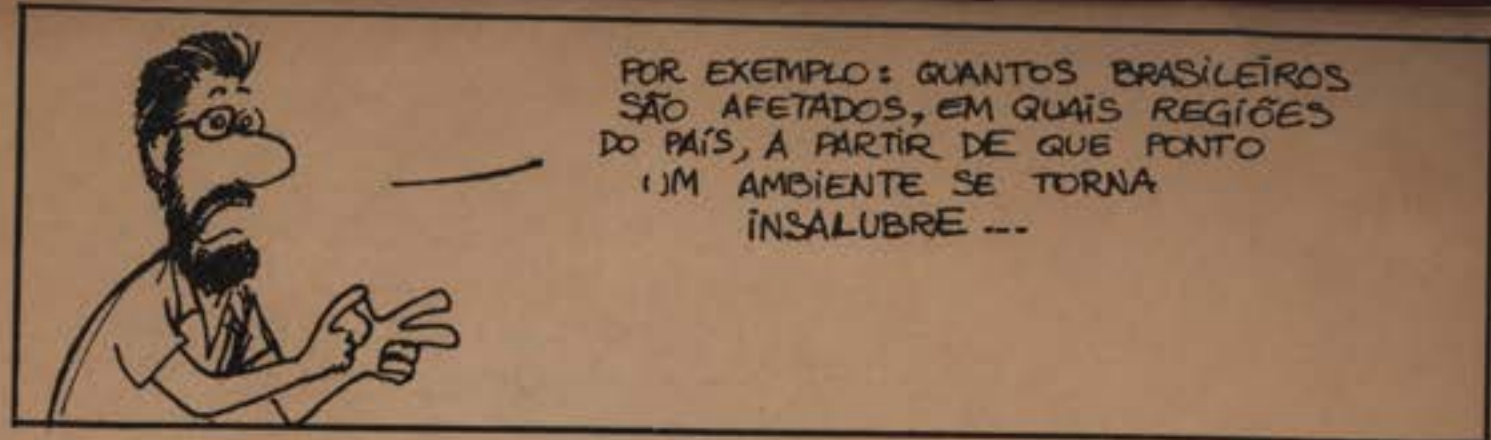 POR EXEMPLO: QUANTOS BRASILEIROS
SÃO AFETADOS, EM QUAIS REGIÕES
DO PAÍS, A PARTIR DE QUE PONTO
UM AMBIENTE SE TORNA
INSALUBRE ...